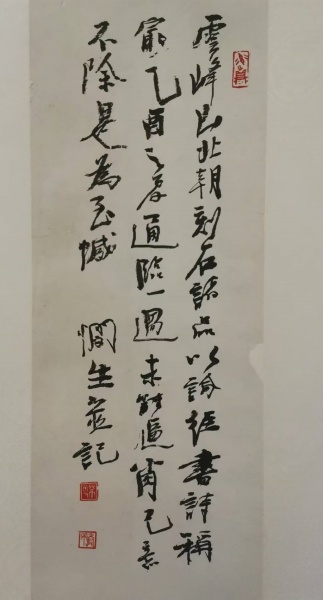 雲峰山北朝刻石諸品以論經書詩稱
最乙酉之春通臨一過未能逼肖己意
不除是為至憾 憪生並記